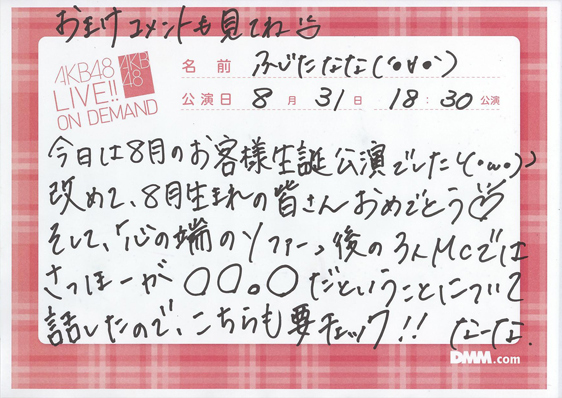 おまけコメントも見てね
AKB48
LIVE!!
ON DEMAND
AKB
48
名前 ふじたなな(*°∀°*)
公演日 8月31日 18:30公演
今日は8月のお客様生誕公演でした\(・ω・)
改めて、8月生まれの皆さんおめでとう♡
そして、「心の端のソファー」後の3人MCでは
さっほーが〇〇。〇だということについて
話したので、こちらも要チェック!! なーな.
DMM.com